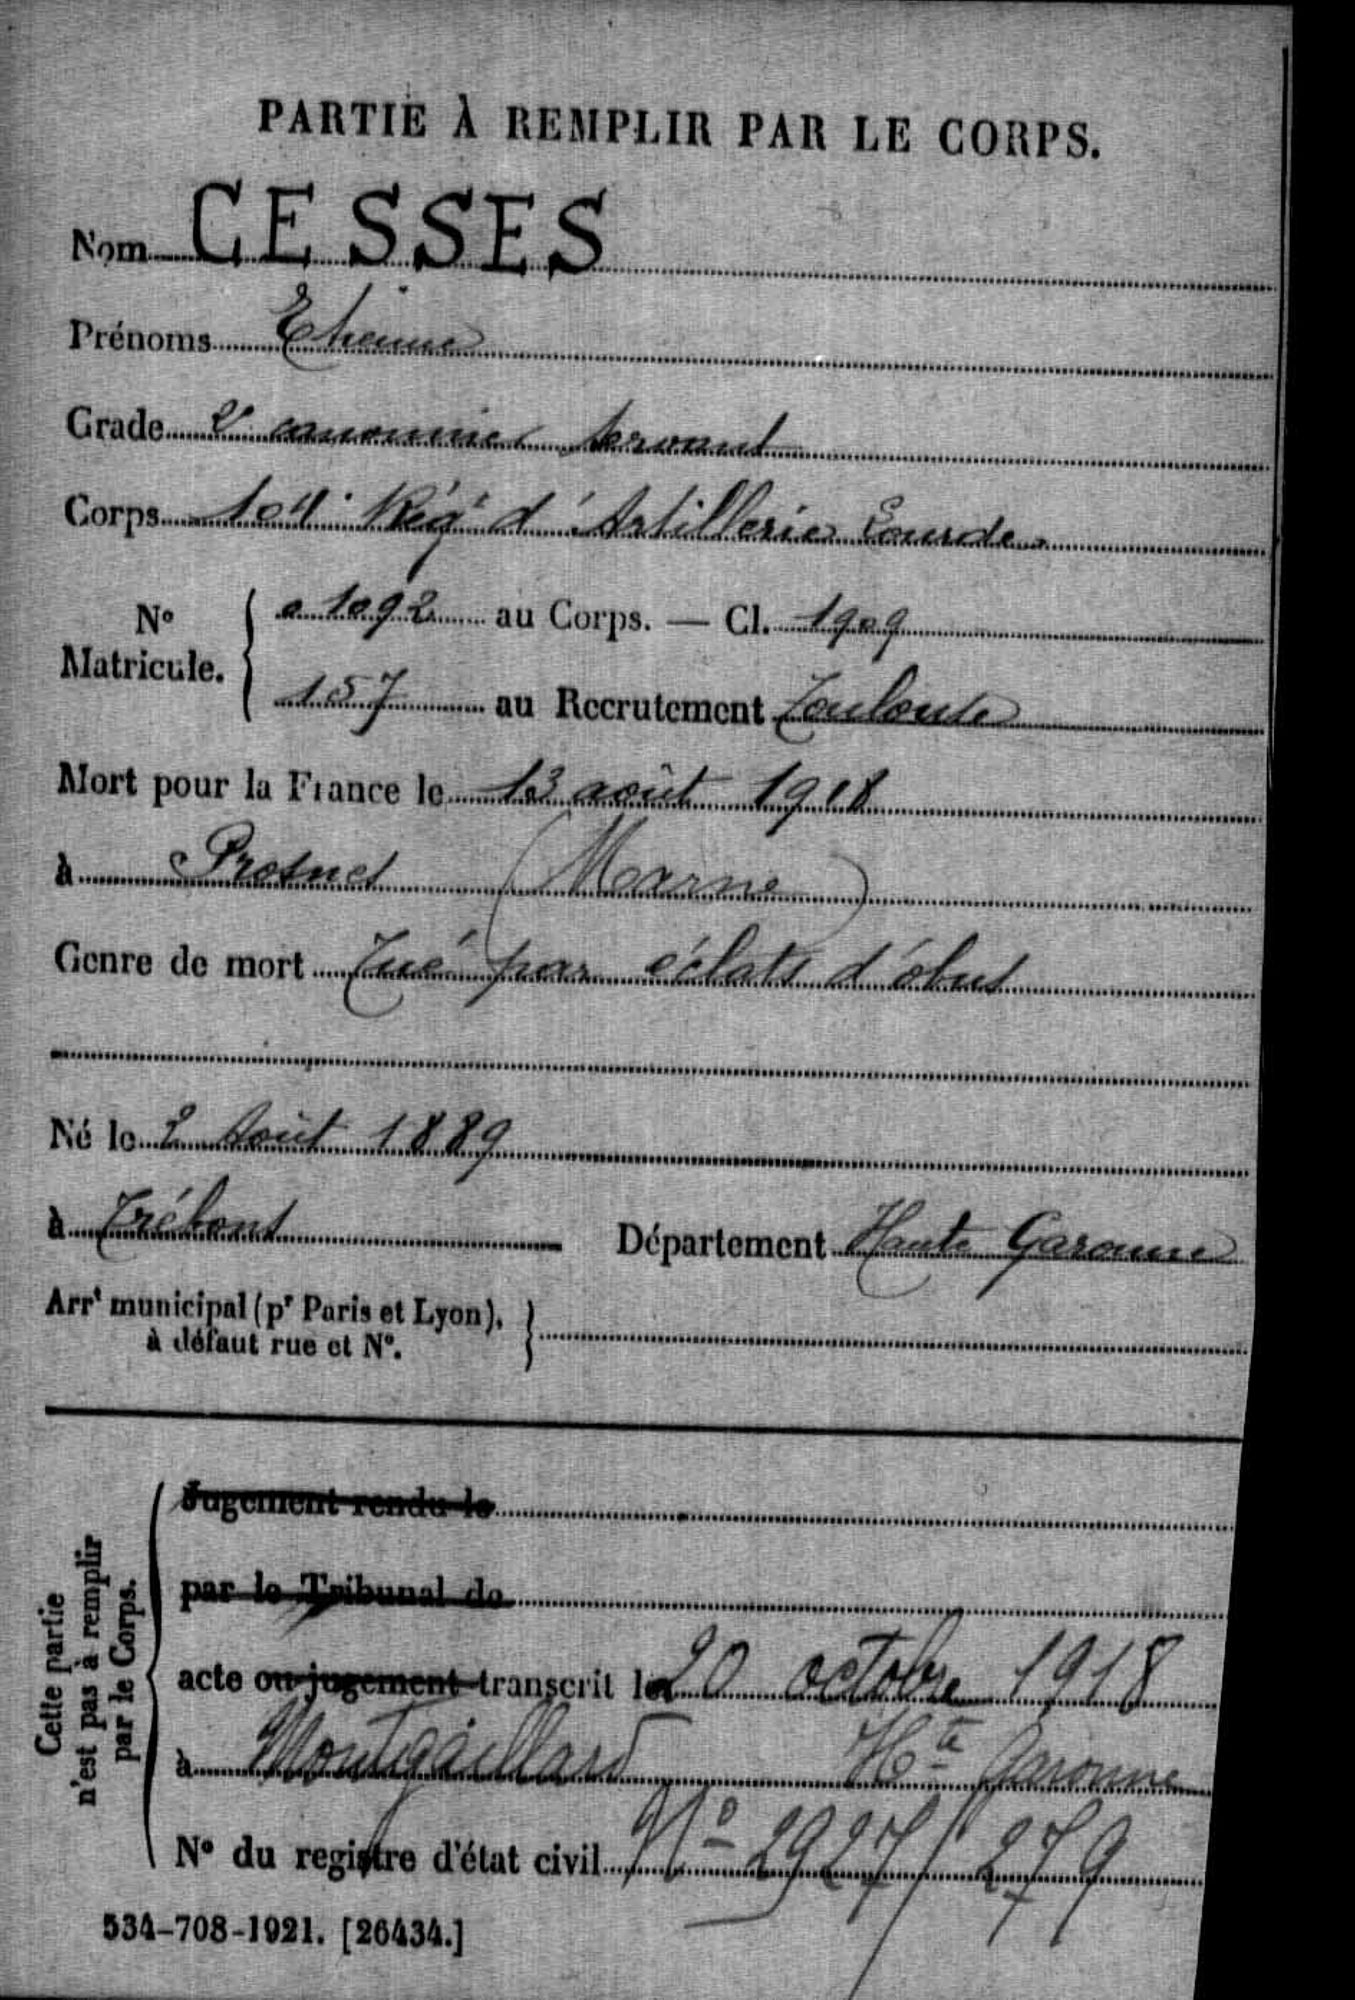 PARTIE À REMPLIR PAR LE CORPS.
Nom CESSES
Prénoms Etienne
Grade 2e canonnier servant
Corps 104e Régt d'Artillerie Lourde
No Matricule. { 01092 au Corps. — Cl. 1909
157 au Recrutement Toulouse
Mort pour la France le 13 août 1918
à Prosnes (Marne)
Genre de mort Tué par éclats d'obus
Né le 2 Août 1889
à Trébons Département Haute Garonne
Arrt municipal (pr Paris et Lyon), à défaut rue et No. }
Cette partie n'est pas à remplir par le Corps.
Jugement rendu le
par le Tribunal de
acte ou jugement transcrit le 20 octobre 1918
à Montgaillard Hte Garonne
No du registre d'état civil No 2927/279
534-708-1921. [26434.]